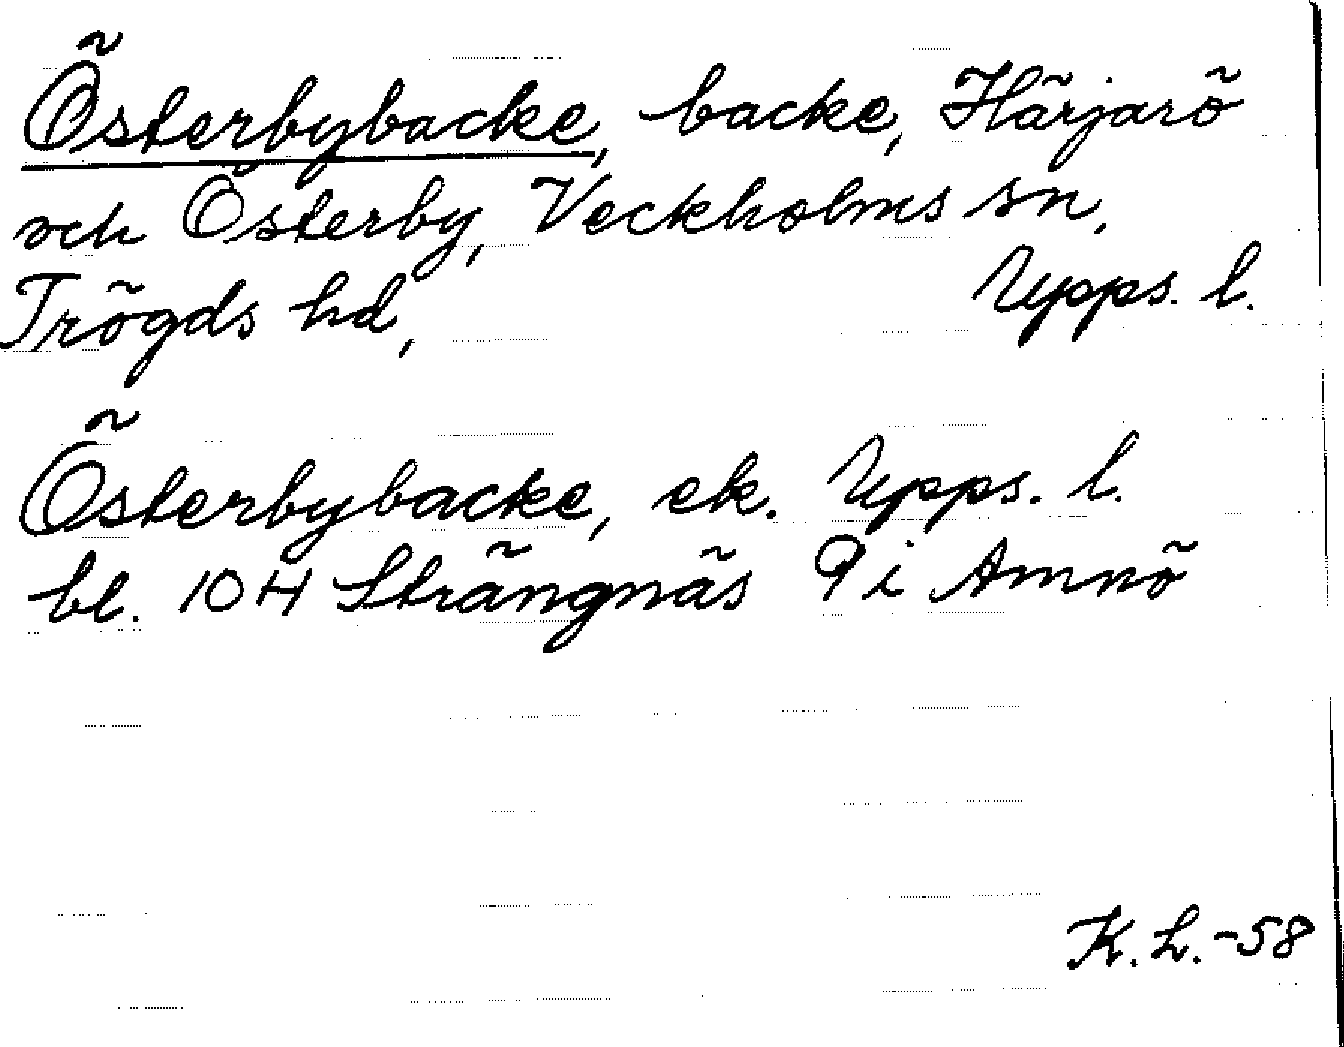 Österbybacke, backe, Härjarö
och Österby, Veckholms sn,
Trögds hd, Upps. l.
Österbybacke, ek. Upps. l.
bl. 104 Strängnäs 9i Amnö
K. L. -58